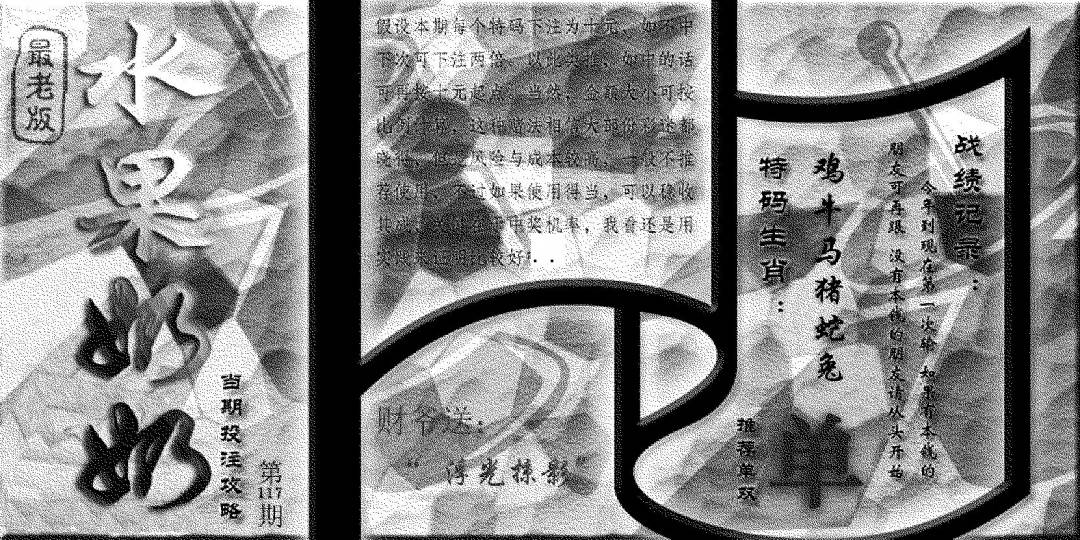 最老版
水果奶奶
当期投注攻略
第117期
假设本期每个特码下注为十元，如不中
下次可下注两倍，以此类推，如中的话
可再按十元起点，当然，金额大小可按
比例
这种赌法相信大
都
风险与成本较高，一般不推
荐使用，不过如果使用得当，可以稳收
中奖机率，我看还是用
比较好。..
财爷送：
“浮光掠影”
特码生肖：
鸡牛马猪蛇兔
推荐单双
单
战绩记录：
今年到现在第一次输 如果有本钱的
朋友可再跟 没有本钱的朋友请从头开始